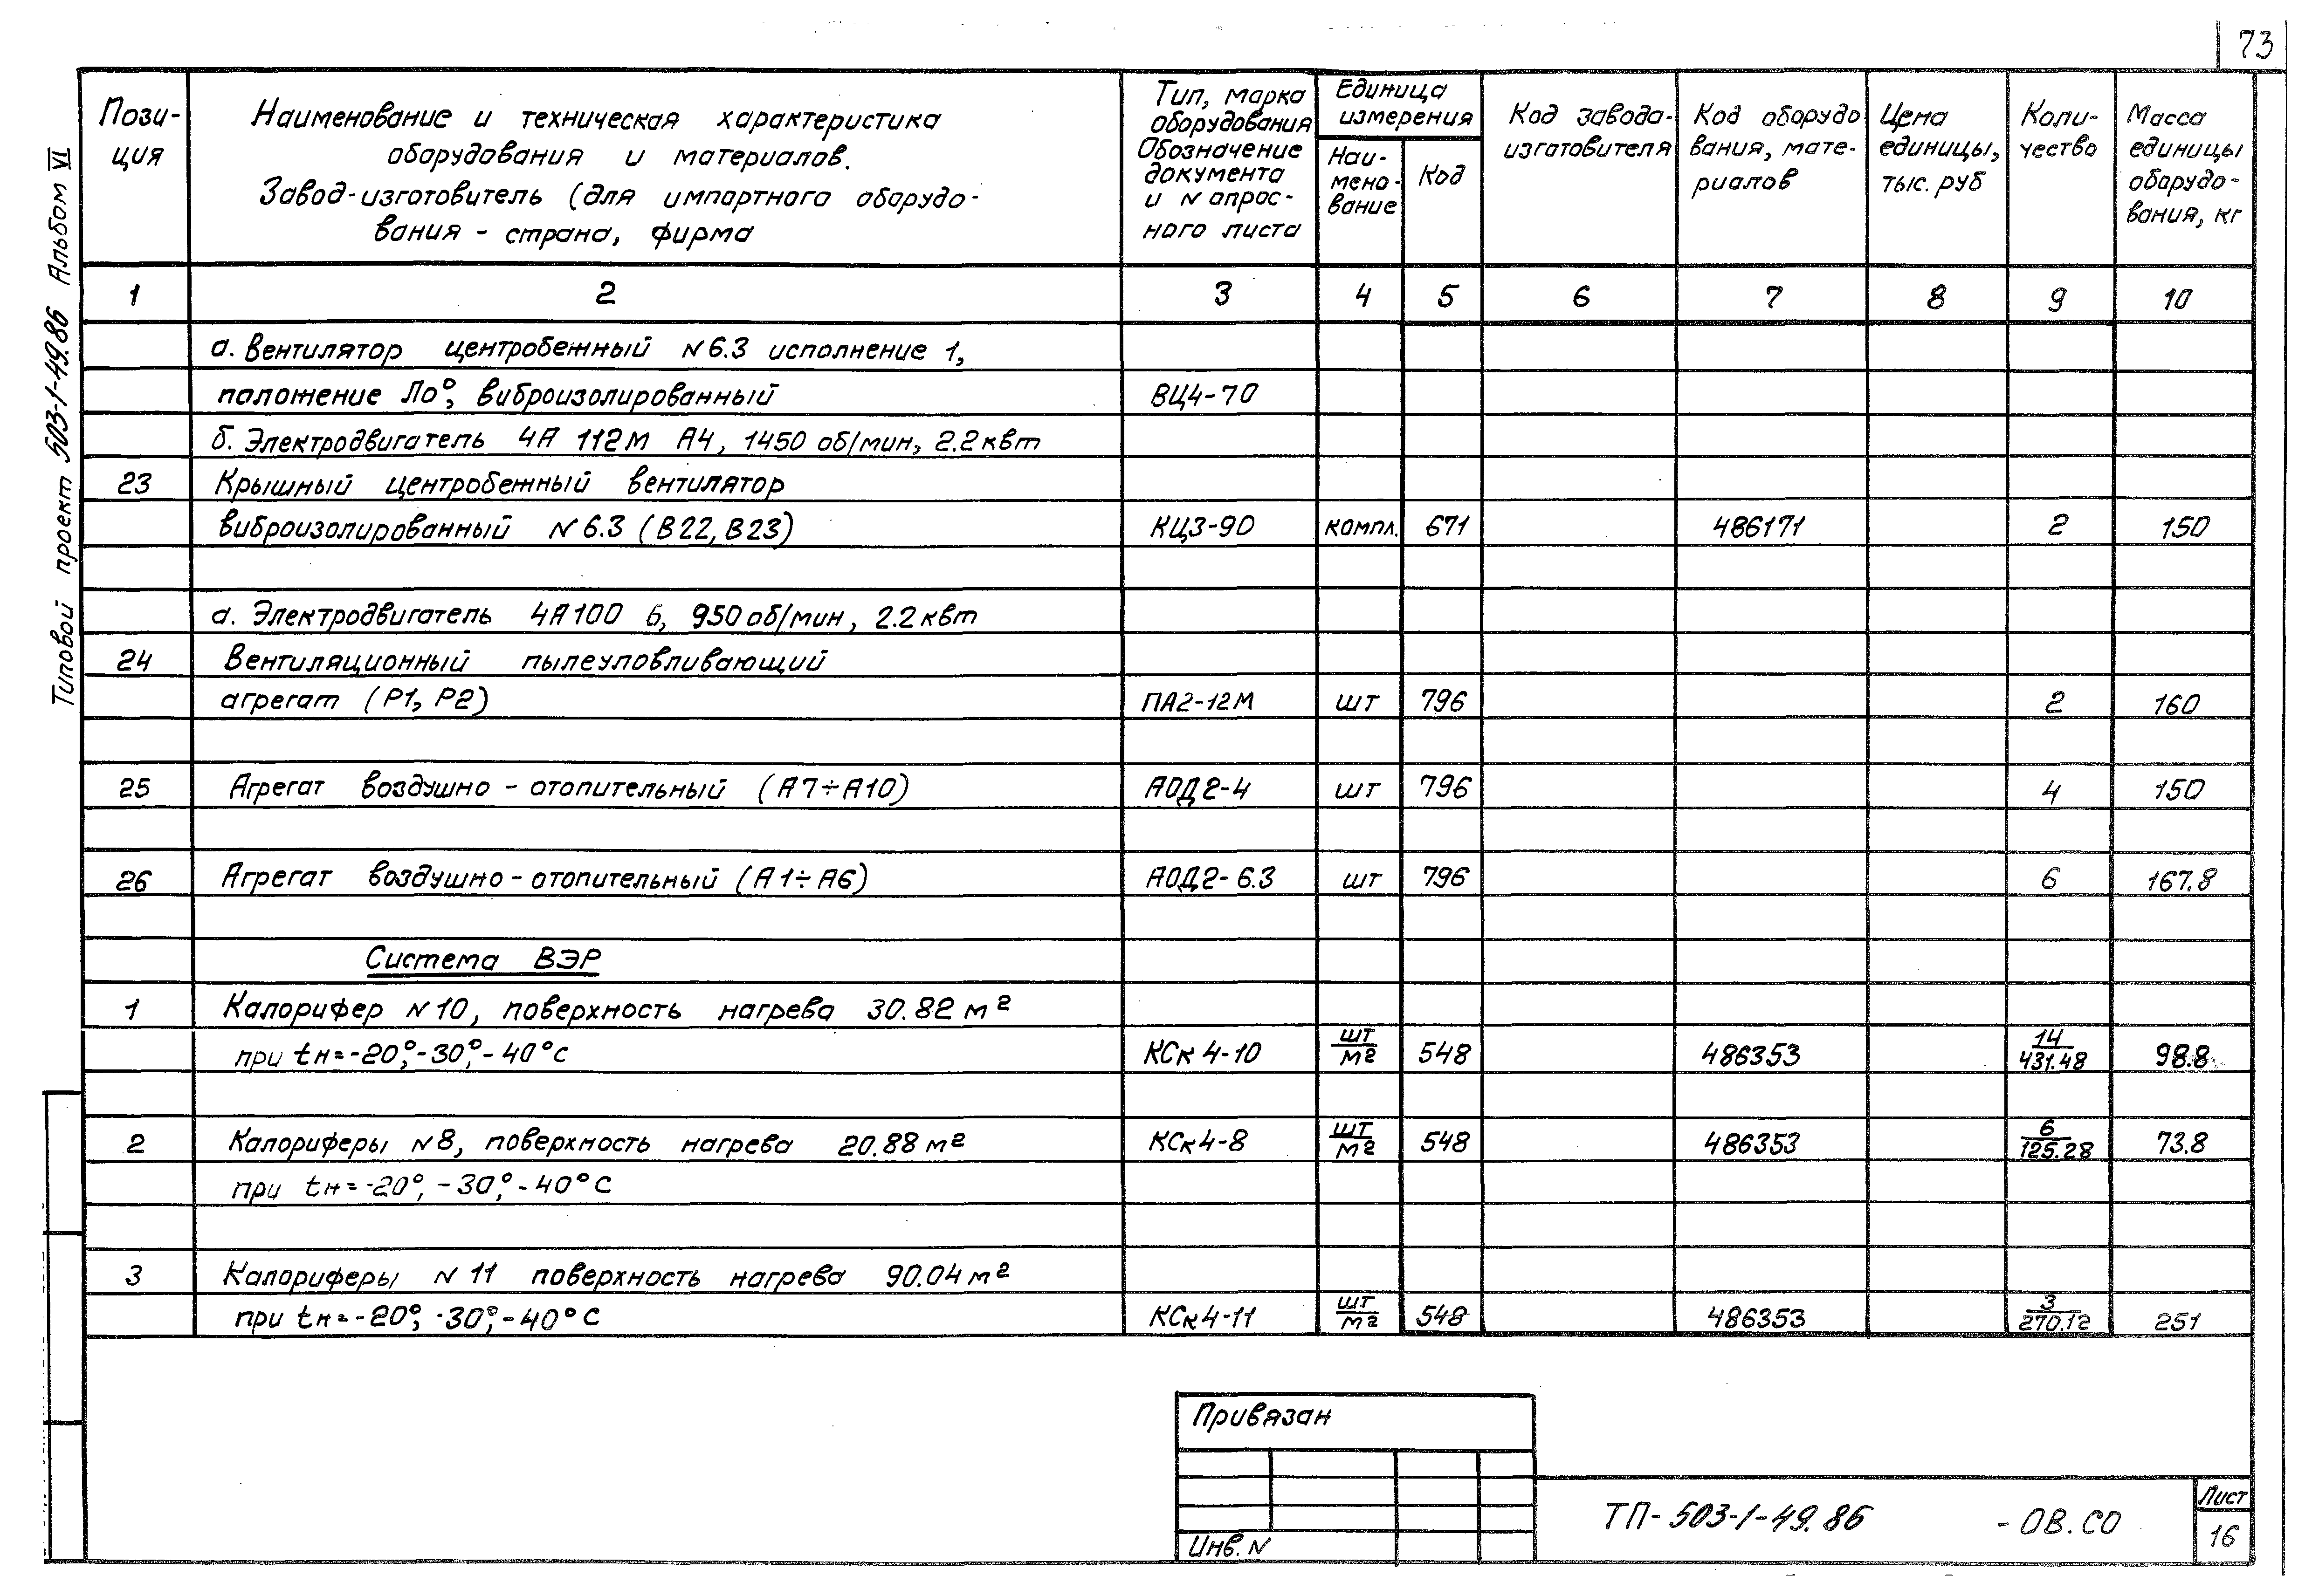 73
Типовой проект 503-1-49.86 Альбом VI
Пози-
ция
Наименование и техническая характеристика
оборудования и материалов.
Завод-изготовитель (для импортного оборудо-
вания - страна, фирма
Тип, марка
оборудования
Обозначение
документа
и N опрос-
ного листа
Единица
измерения
Наи-
мено-
вание
Код
Код завода-
изготовителя
Код оборудо
вания, мате-
риалов
Цена
единицы,
тыс. руб
Коли-
чество
Масса
единицы
оборудо-
вания, кг
1 2 3 4 5 6 7 8 9 10
а. Вентилятор центробежный N6.3 исполнение 1,
положение Л0°, виброизолированный ВЦ4-70
б. Электродвигатель 4А 112М А4, 1450 об/мин, 2.2 квт
23 Крышный центробежный вентилятор
виброизолированный N 6.3 (В22, В23) КЦ3-90 компл. 671 486171 2 150
а. Электродвигатель 4А100 6, 950 об/мин, 2.2 квт
24 Вентиляционный пылеуловливающий
агрегат (Р1, Р2) ПА2-12М шт 796 2 160
25 Агрегат воздушно - отопительный (А7÷А10) АОД2-4 шт 796 4 150
26 Агрегат воздушно - отопительный (А1÷А6) АОД2-6.3 шт 796 6 167.8
Система ВЭР
1 Калорифер N10, поверхность нагрева 30.82 м²
при tн=-20°,-30°,-40°С КСк 4-10 шт/м² 548 486353 14/431.48 98.8
2 Калориферы N8, поверхность нагрева 20.88 м² КСк4-8 шт/м² 548 486353 6/125.28 73.8
при tн=-20°, -30,°-40°С
3 Калориферы N 11 поверхность нагрева 90.04 м²
при tн=-20°, -30°,-40°С КСк4-11 шт/м² 548 486353 3/270.12 251
Привязан
Инв. N
ТП-503-1-49.86 -ОВ.СО
Лист
16